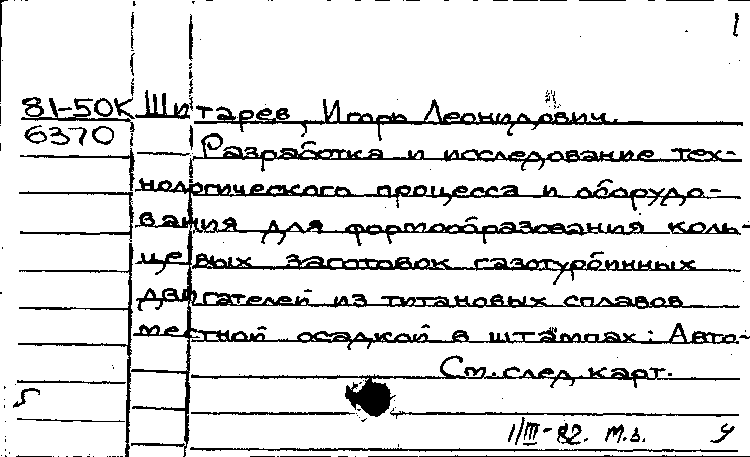 1
81-50К Шитарев, Игорь Леонидович.
6370 Разработка и исследование тех-
нологического процесса и оборудо-
вания для формообразования коль-
цевых заготовок газотурбинных
двигателей из титановых сплавов
местной осадкой в штампах: Авто-
См. след. карт.
5
1/III-82. М.в. У